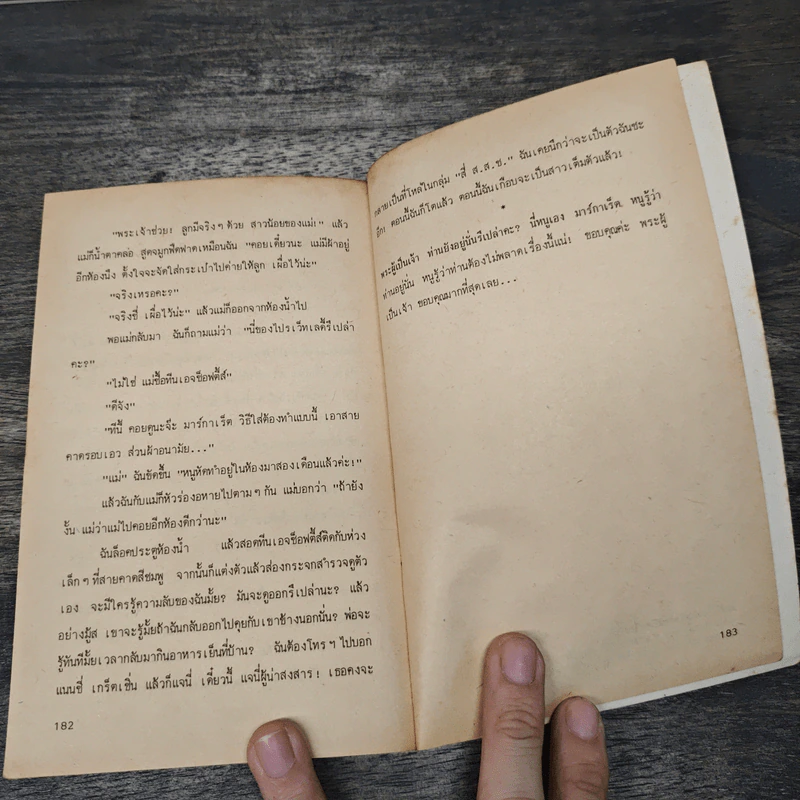 "พระเจ้าช่วย! ลูกมีจริงๆ ด้วย สาวน้อยของแม่!" แล้ว
แม่ก็น้ำตาคลอ สูดจมูกฟืดฟาดเหมือนฉัน "คอยเดี๋ยวนะ แม่มีผ้าอยู่
อีกห้องนึง ตั้งใจจะจัดใส่กระเป๋าไปค่ายให้ลูก เผื่อไว้น่ะ"
"จริงเหรอคะ?"
"จริงซี่ เผื่อไว้น่ะ" แล้วแม่ก็ออกจากห้องน้ำไป
พอแม่กลับมา ฉันก็ถามแม่ว่า "นี่ของไปรเว็ทเลดี้รึเปล่า
คะ?"
"ไม่ใช่ แม่ซื้อทีนเอจซ็อฟตี้ส์"
"ดีจัง"
"ทีนี้ คอยดูนะจ๊ะ มาร์กาเร็ต วิธีใส่ต้องทำแบบนี้ เอาสาย
คาดรอบเอว ส่วนผ้าอนามัย..."
"แม่" ฉันขัดขึ้น "หนูหัดทำอยู่ในห้องมาสองเดือนแล้วค่ะ!"
แล้วฉันกับแม่ก็หัวร่องอหายไปตามๆ กัน แม่บอกว่า "ถ้ายัง
งั้น แม่ว่าแม่ไปคอยอีกห้องดีกว่านะ"
ฉันล็อคประตูห้องน้ำ แล้วสอดทีนเอจซ็อฟตี้ส์ติดกับห่วง
เล็กๆ ที่สายคาดสีชมพู จากนั้นก็แต่งตัวแล้วส่องกระจกสำรวจดูตัว
เอง จะมีใครรู้ความลับของฉันมั้ย? มันจะดูออกรึเปล่านะ? แล้ว
อย่างมู้ส เขาจะรู้มั้ยถ้าฉันกลับออกไปคุยกับเขาข้างนอกนั่น? พ่อจะ
รู้ทันทีมั้ยเวลากลับมากินอาหารเย็นที่บ้าน? ฉันต้องโทรฯ ไปบอก
แนนซี่ เกร็ตเช่น แล้วก็แจนี่ เดี๋ยวนี้ แจนี่ผู้น่าสงสาร! เธอคงจะ
182
กลายเป็นที่โหล่ในกลุ่ม "สี่ ส.ส.ช." ฉันเคยนึกว่าจะเป็นตัวฉันซะ
อีก! ตอนนี้ฉันก็โตแล้ว ตอนนี้ฉันเกือบจะเป็นสาวเต็มตัวแล้ว!
*
พระผู้เป็นเจ้า ท่านยังอยู่นั่นรึเปล่าคะ? นี่หนูเอง มาร์กาเร็ต หนูรู้ว่า
ท่านอยู่นั่น หนูรู้ว่าท่านต้องไม่พลาดเรื่องนี้แน่! ขอบคุณค่ะ พระผู้
เป็นเจ้า ขอบคุณมากที่สุดเลย...
183